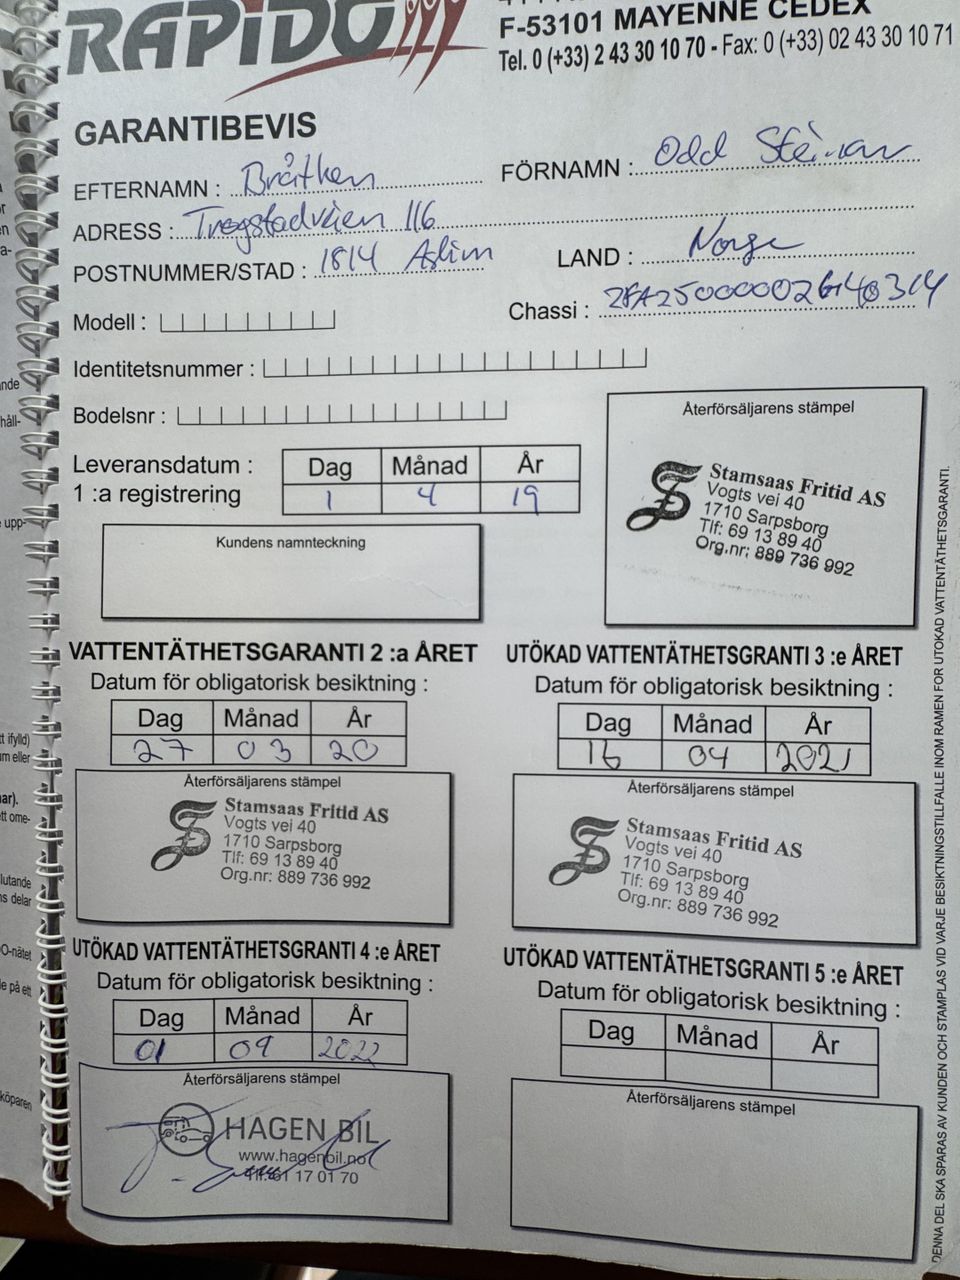 RAPIDO
F-53101 MAYENNE CEDEX
Tel. 0 (+33) 2 43 30 10 70 - Fax: 0 (+33) 02 43 30 10 71
GARANTIBEVIS
EFTERNAMN : Bråthen FÖRNAMN : Odd Steinar
ADRESS : Trøgstadveien 116
POSTNUMMER/STAD : 1814 Askim LAND : Norge
Modell : Chassi : ZFA25000002G140314
Identitetsnummer :
Bodelsnr :
Återförsäljarens stämpel
Stamsaas Fritid AS
Vogts vei 40
1710 Sarpsborg
Tlf: 69 13 89 40
Org.nr: 889 736 992
Leveransdatum : Dag Månad År
1 :a registrering 1 4 19
Kundens namnteckning
VATTENTÄTHETSGARANTI 2 :a ÅRET
Datum för obligatorisk besiktning :
Dag Månad År
27 03 20
Återförsäljarens stämpel
Stamsaas Fritid AS
Vogts vei 40
1710 Sarpsborg
Tlf: 69 13 89 40
Org.nr: 889 736 992
UTÖKAD VATTENTÄTHETSGRANTI 3 :e ÅRET
Datum för obligatorisk besiktning :
Dag Månad År
16 04 2021
Återförsäljarens stämpel
Stamsaas Fritid AS
Vogts vei 40
1710 Sarpsborg
Tlf: 69 13 89 40
Org.nr: 889 736 992
UTÖKAD VATTENTÄTHETSGRANTI 4 :e ÅRET
Datum för obligatorisk besiktning :
Dag Månad År
01 09 2022
Återförsäljarens stämpel
HAGEN BIL
www.hagenbil.no
Tlf: 61 17 01 70
UTÖKAD VATTENTÄTHETSGRANTI 5 :e ÅRET
Datum för obligatorisk besiktning :
Dag Månad År
Återförsäljarens stämpel
DENNA DEL SKA SPARAS AV KUNDEN OCH STAMPLAS VID VARJE BESIKTNINGSTILLFALLE INOM RAMEN FOR UTOKAD VATTENTÄTHETSGARANTI.